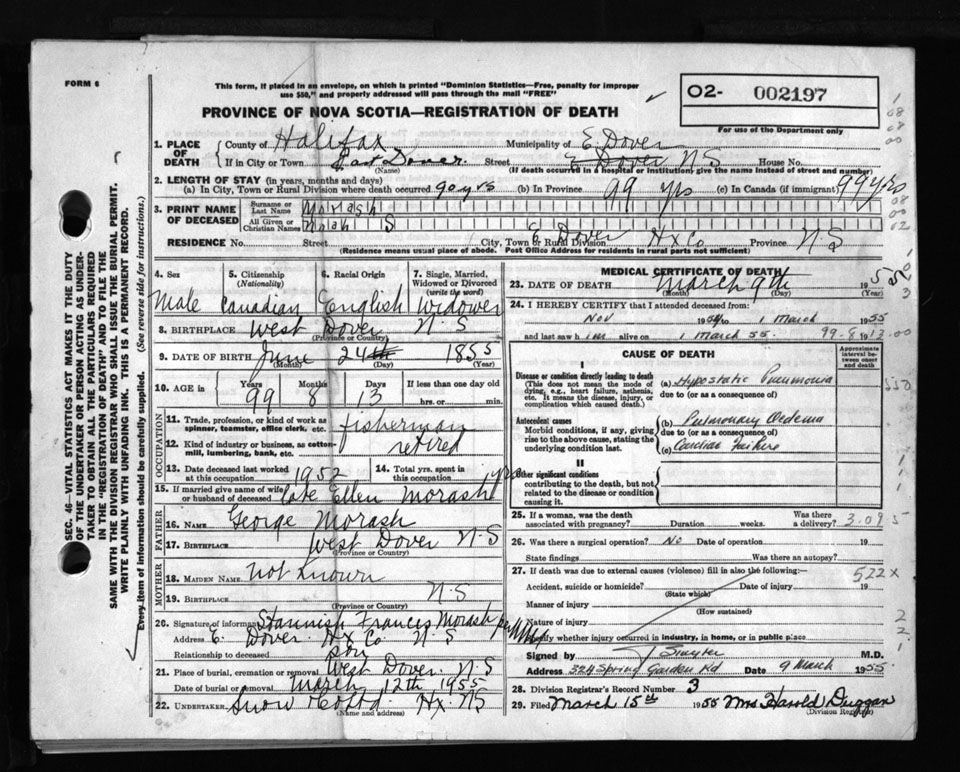 FORM 6
This form, if placed in an envelope, on which is printed "Dominion Statistics—Free, penalty for improper
use $50," and properly addressed will pass through the mail "FREE"
PROVINCE OF NOVA SCOTIA—REGISTRATION OF DEATH
O2- 002197
For use of the Department only
SEC. 46—VITAL STATISTICS ACT MAKES IT THE DUTY
OF THE UNDERTAKER OR PERSON ACTING AS UNDER-
TAKER TO OBTAIN ALL THE PARTICULARS REQUIRED
IN THE "REGISTRATION OF DEATH" AND TO FILE THE
SAME WITH THE DIVISION REGISTRAR WHO SHALL ISSUE THE BURIAL PERMIT.
WRITE PLAINLY WITH UNFADING INK. THIS IS A PERMANENT RECORD.
Every item of information should be carefully supplied. (See reverse side for instructions.)
1. PLACE OF DEATH
County of Halifax Municipality of E Dover
If in City or Town East Dover. Street E Dover N S House No.
(Name) (If death occurred in a hospital or institution, give the name instead of street and number)
2. LENGTH OF STAY (in years, months and days)
(a) In City, Town or Rural Division where death occurred 90 yrs (b) In Province 99 yrs (c) In Canada (if immigrant) 99 yrs
3. PRINT NAME OF DECEASED
Surname or Last Name Morash
All Given or Christian Names S
RESIDENCE No. Street E Dover Hx Co Province N S
City, Town or Rural Division
(Residence means usual place of abode. Post Office Address for residents in rural parts not sufficient)
4. Sex 5. Citizenship (Nationality) 6. Racial Origin 7. Single, Married, Widowed or Divorced (write the word)
Male Canadian English Widower
8. BIRTHPLACE West Dover N S
(Province or Country)
9. DATE OF BIRTH June 24th 1855
(Month) (Day) (Year)
10. AGE in Years Months Days If less than one day old
99 8 13 hrs. or min.
OCCUPATION
11. Trade, profession, or kind of work as spinner, teamster, office clerk, etc. fisherman
12. Kind of industry or business, as cotton-mill, lumbering, bank, etc. retired
13. Date deceased last worked at this occupation 1952 14. Total yrs. spent in this occupation yrs
15. If married give name of wife or husband of deceased late Ellen Morash
FATHER
16. NAME George Morash
17. Birthplace West Dover N-S
(Province or Country)
MOTHER
18. MAIDEN NAME Not known
19. BIRTHPLACE N-S
(Province or Country)
20. Signature of informant Stannish Francis Morash per
Address E. Dover Hx Co N S
Relationship to deceased son
21. Place of burial, cremation or removal West Dover. N-S
Date of burial or removal March 12th 1955
22. UNDERTAKER Snow Hx. NS
(Name and address)
MEDICAL CERTIFICATE OF DEATH
23. DATE OF DEATH March 9th 1955
(Month) (Day) (Year)
24. I HEREBY CERTIFY that I attended deceased from:
Nov 1954 to 1 March 1955
and last saw him alive on 1 March 55
CAUSE OF DEATH
Approximate interval between onset and death
I
Disease or condition directly leading to death
(This does not mean the mode of dying, e.g., heart failure, asthenia, etc. It means the disease, injury, or complication which caused death.)
(a) Hypostatic Pneumonia
due to (or as a consequence of)
Antecedent causes
Morbid conditions, if any, giving rise to the above cause, stating the underlying condition last.
(b) Pulmonary Oedema
due to (or as a consequence of)
(c) Cardiac Failure
II
Other significant conditions
contributing to the death, but not related to the disease or condition causing it.
25. If a woman, was the death associated with pregnancy? Duration weeks. Was there a delivery? 3.095
26. Was there a surgical operation? No Date of operation 19
State findings Was there an autopsy?
27. If death was due to external causes (violence) fill in also the following:— 522 X
Accident, suicide or homicide? Date of injury 19
(State which)
Manner of injury
(How sustained)
Nature of injury
Specify whether injury occurred in industry, in home, or in public place
Signed by M.D.
Address 324 Spring Garden Rd Date 9 March 1955
28. Division Registrar's Record Number 3
29. Filed March 15th 1955 Mrs Harold Duggan
(Division Registrar)